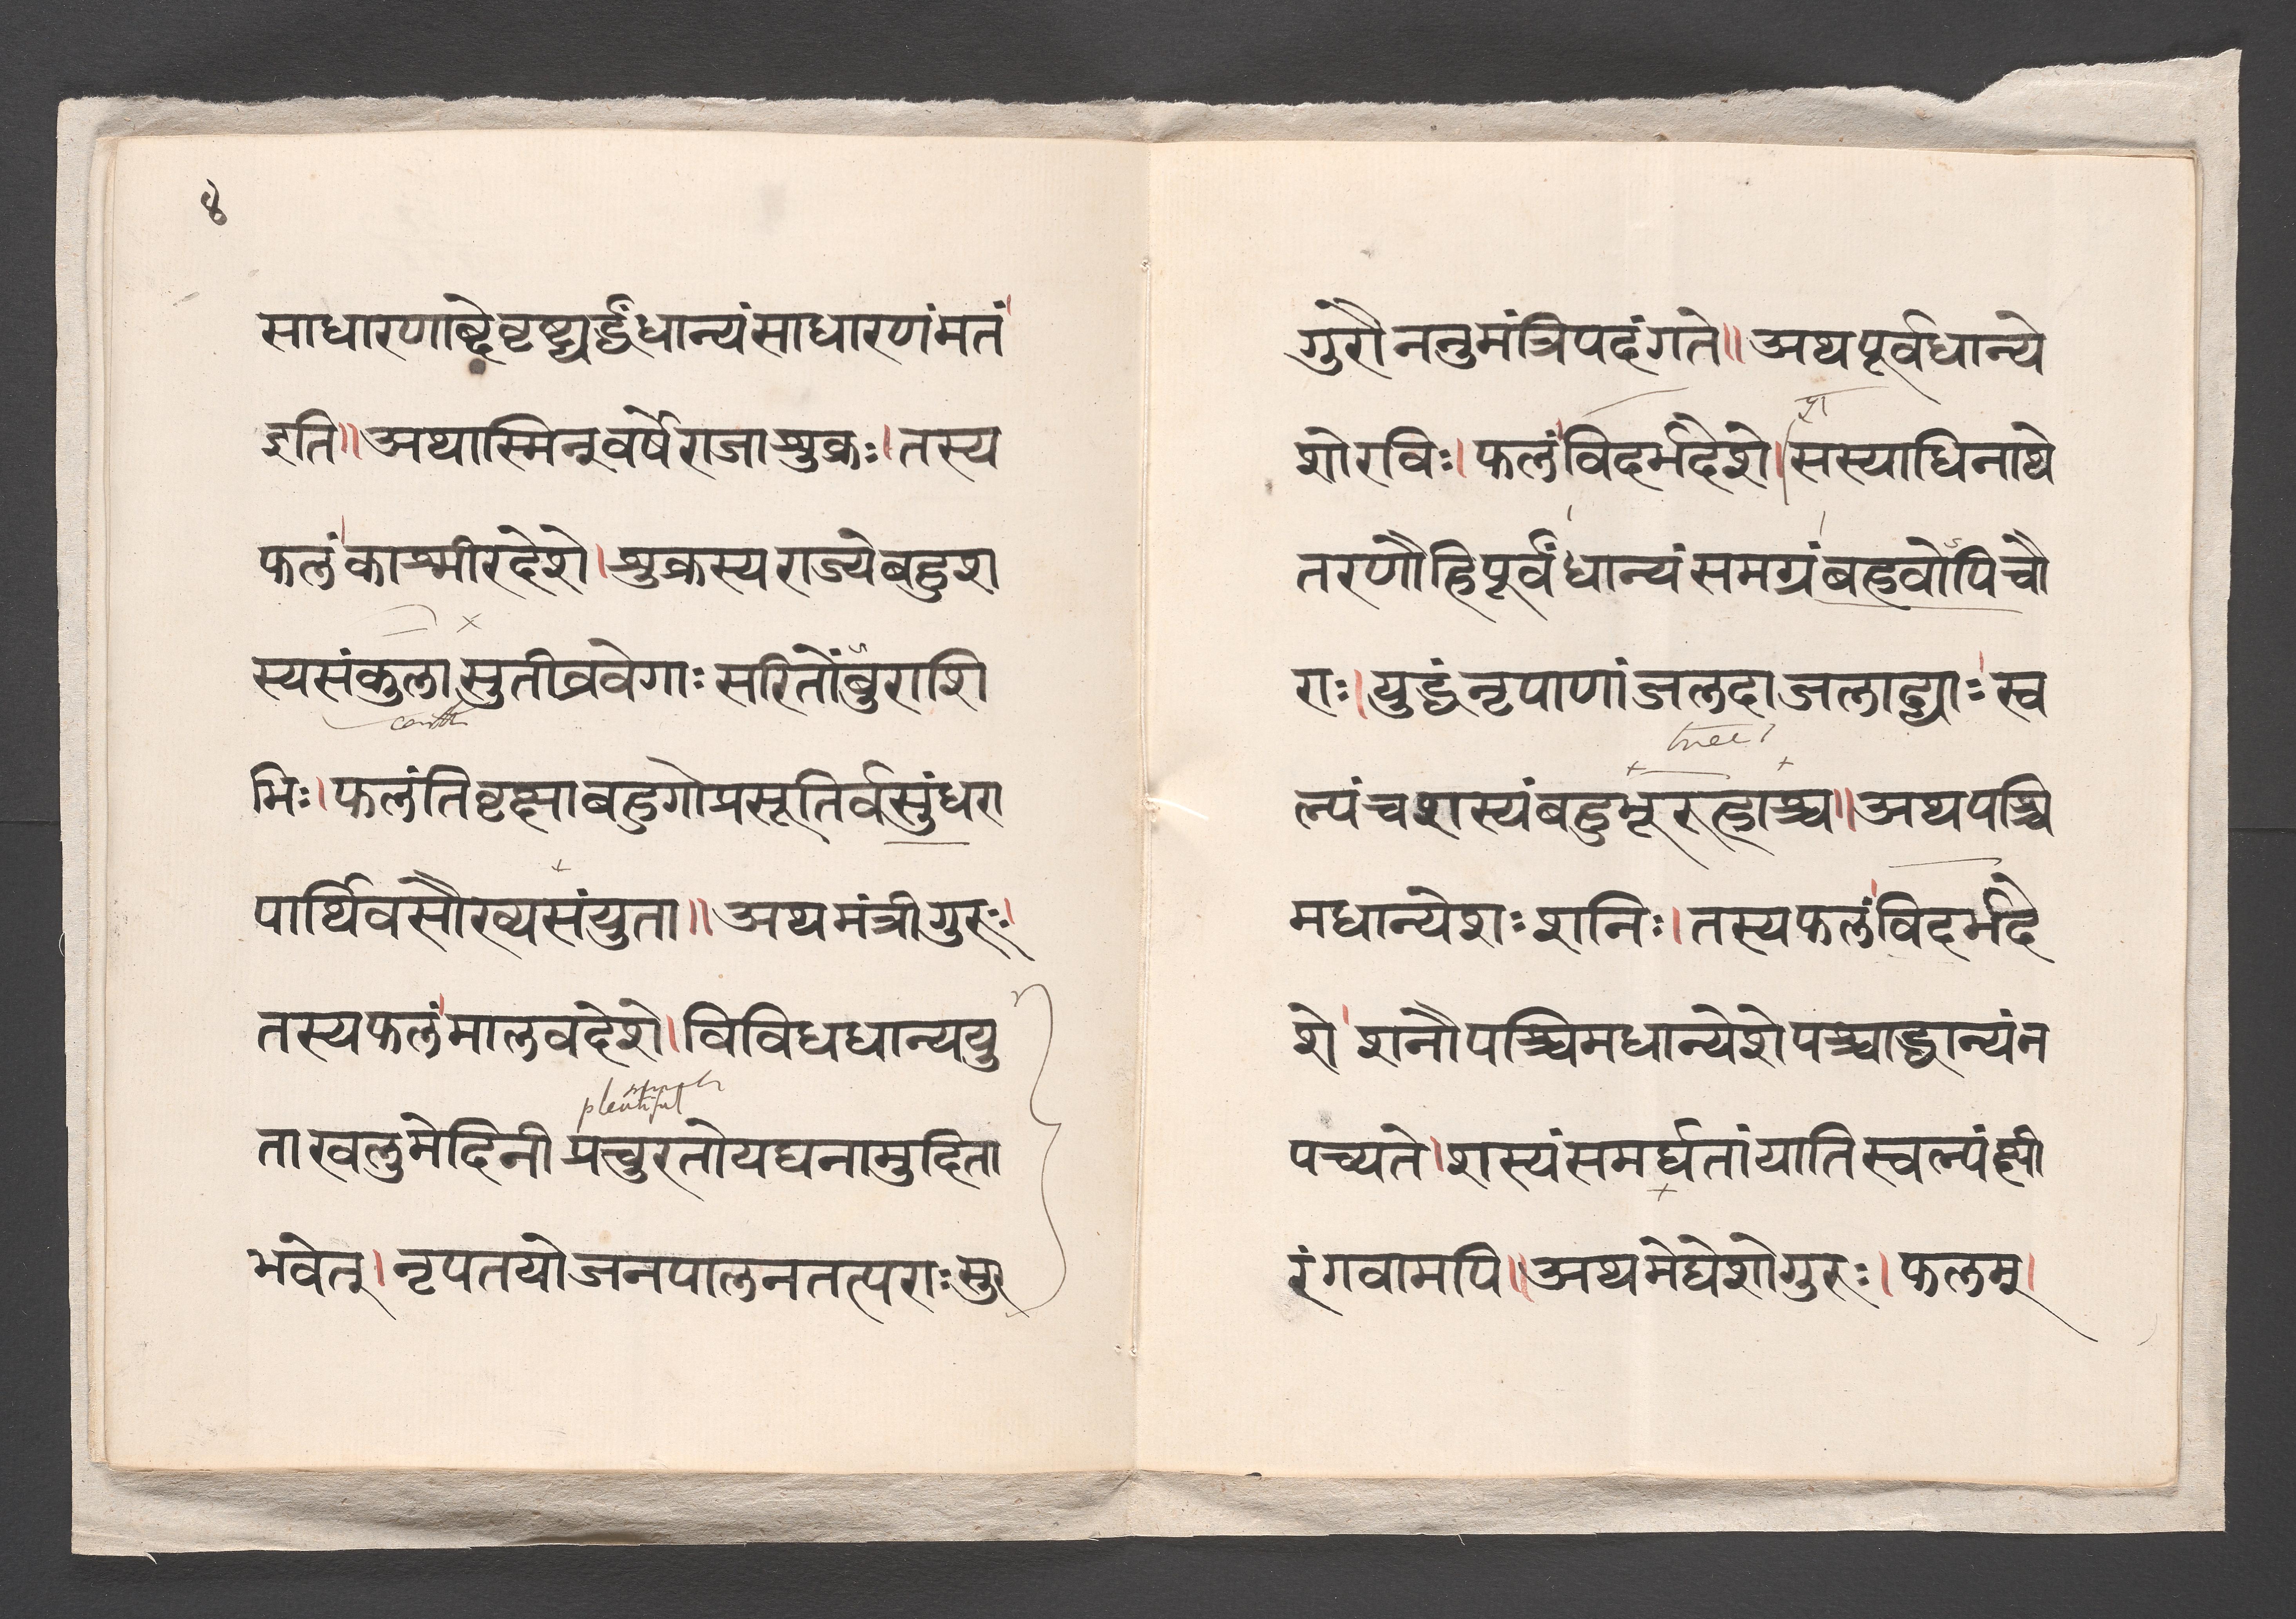 ४
साधारणाब्देवृष्ट्यर्द्धंधान्यंसाधारणंमतं
इति॥अथास्मिन्वर्षेराजाशुक्रः।तस्य
फलंकाश्मीरदेशे।शुक्रस्यराज्येबहुश
स्यसंकुलासुतीव्रवेगाःसरितोंबुराशि
earth
भिः।फलंतिवृक्षाबहुगोप्रसूतिर्वसुंधरा
पार्थिवसौख्यसंयुता॥अथमंत्रीगुरुः।
तस्यफलंमालवदेशे।विविधधान्ययु
plentiful
ताखलुमेदिनीप्रचुरतोयघनामुदिता
भवेत्।नृपतयोजनपालनतत्पराःसुर
गुरौननुमंत्रिपदंगते॥अथपूर्वधान्ये
शोरविः।फलंविदर्भदेशे।सस्याधिनाथे
तरणौहिपूर्वंधान्यंसमग्रंबहवोऽपिचौ
राः।युद्धंनृपाणांजलदाजलाढ्याःस्व
tree
ल्पंचशस्यंबहुभूरुहाश्च॥अथपश्चि
मधान्येशःशनिः।तस्यफलंविदर्भदे
शे।शनौपश्चिमधान्येशेपश्चाद्धान्यंन
पच्यते।शस्यंसमर्घतांयातिस्वल्पंक्षी
रंगवामपि॥अथमेघेशोगुरुः।फलम्।